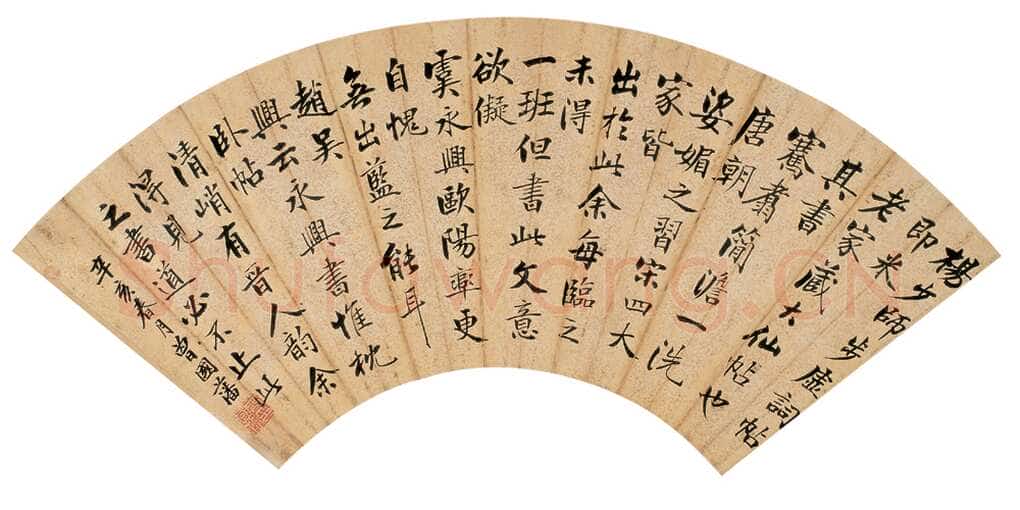 楊少師步虛詞帖
即米
老家藏大仙帖也
其書
騫翥簡澹一洗
唐朝
姿媚之習宋四大
家皆
出於此余每臨之
未得
一班但書此文意
欲儗
虞永興歐陽率更
自愧
無出藍之能耳
趙吳
興云永興書惟枕
臥帖
清峭有晉人韻余
得見道必不止此
之書
辛亥春月曾國藩
shufawang.CN